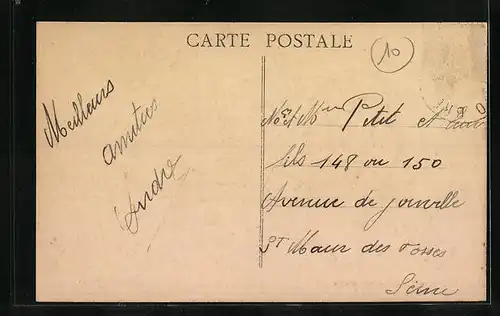 CARTE POSTALE
10
Meilleurs
amitiés
André
Mr et Mme Petit et leur
fils 148 ou 150
Avenue de Joinville
St Maur des Fosses
Seine